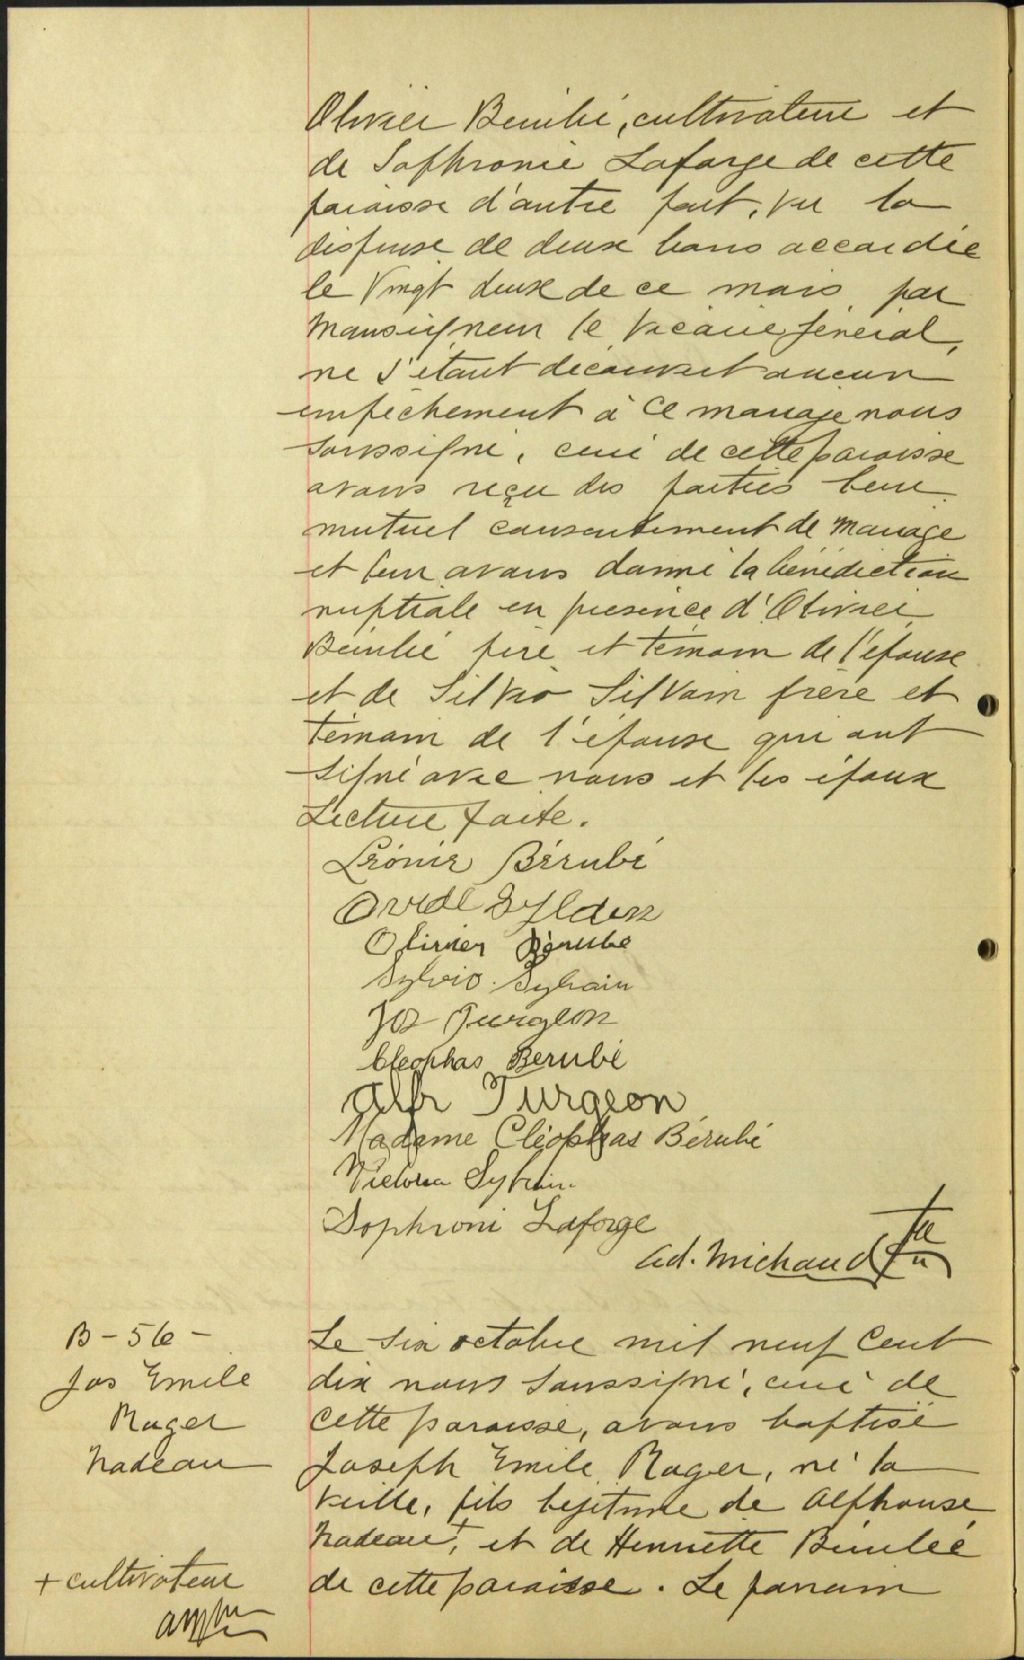 Olivier Bérubé, cultivateur et
de Sophronie Laforge de cette
paroisse d'autre part, vu la
dispense de deux bans accordée
le vingt deux de ce mois par
Monseigneur le Vicaire général,
ne s'étant découvert aucun
empêchement à ce mariage nous
soussigné, curé de cette paroisse
avons reçu des parties leur
mutuel consentement de mariage
et leur avons donné la bénédiction
nuptiale en présence d'Olivier
Bérubé père et témoin de l'épouse
et de Silvio Silvain frère et
témoin de l'épouse qui ont
signé avec nous et les époux
Lecture faite.
Léonie Bérubé
Olivier Bérubé
Sylvio Sylvain
Jos Turgeon
Cléophas Berubé
Alfr Turgeon
Madame Cléophas Bérubé
Victoria Sylvain
Sophroni Laforge
Ad. Michaud Ptre
B-56-
Jos Emile
Roger
Nadeau
Le six octobre mil neuf cent
dix nous soussigné, curé de
cette paroisse, avons baptisé
Joseph Emile Roger, né la
veille, fils légitime de Alphonse
Nadeau+, et de Henriette Bérubé
de cette paroisse. Le parrain
+ cultivateur